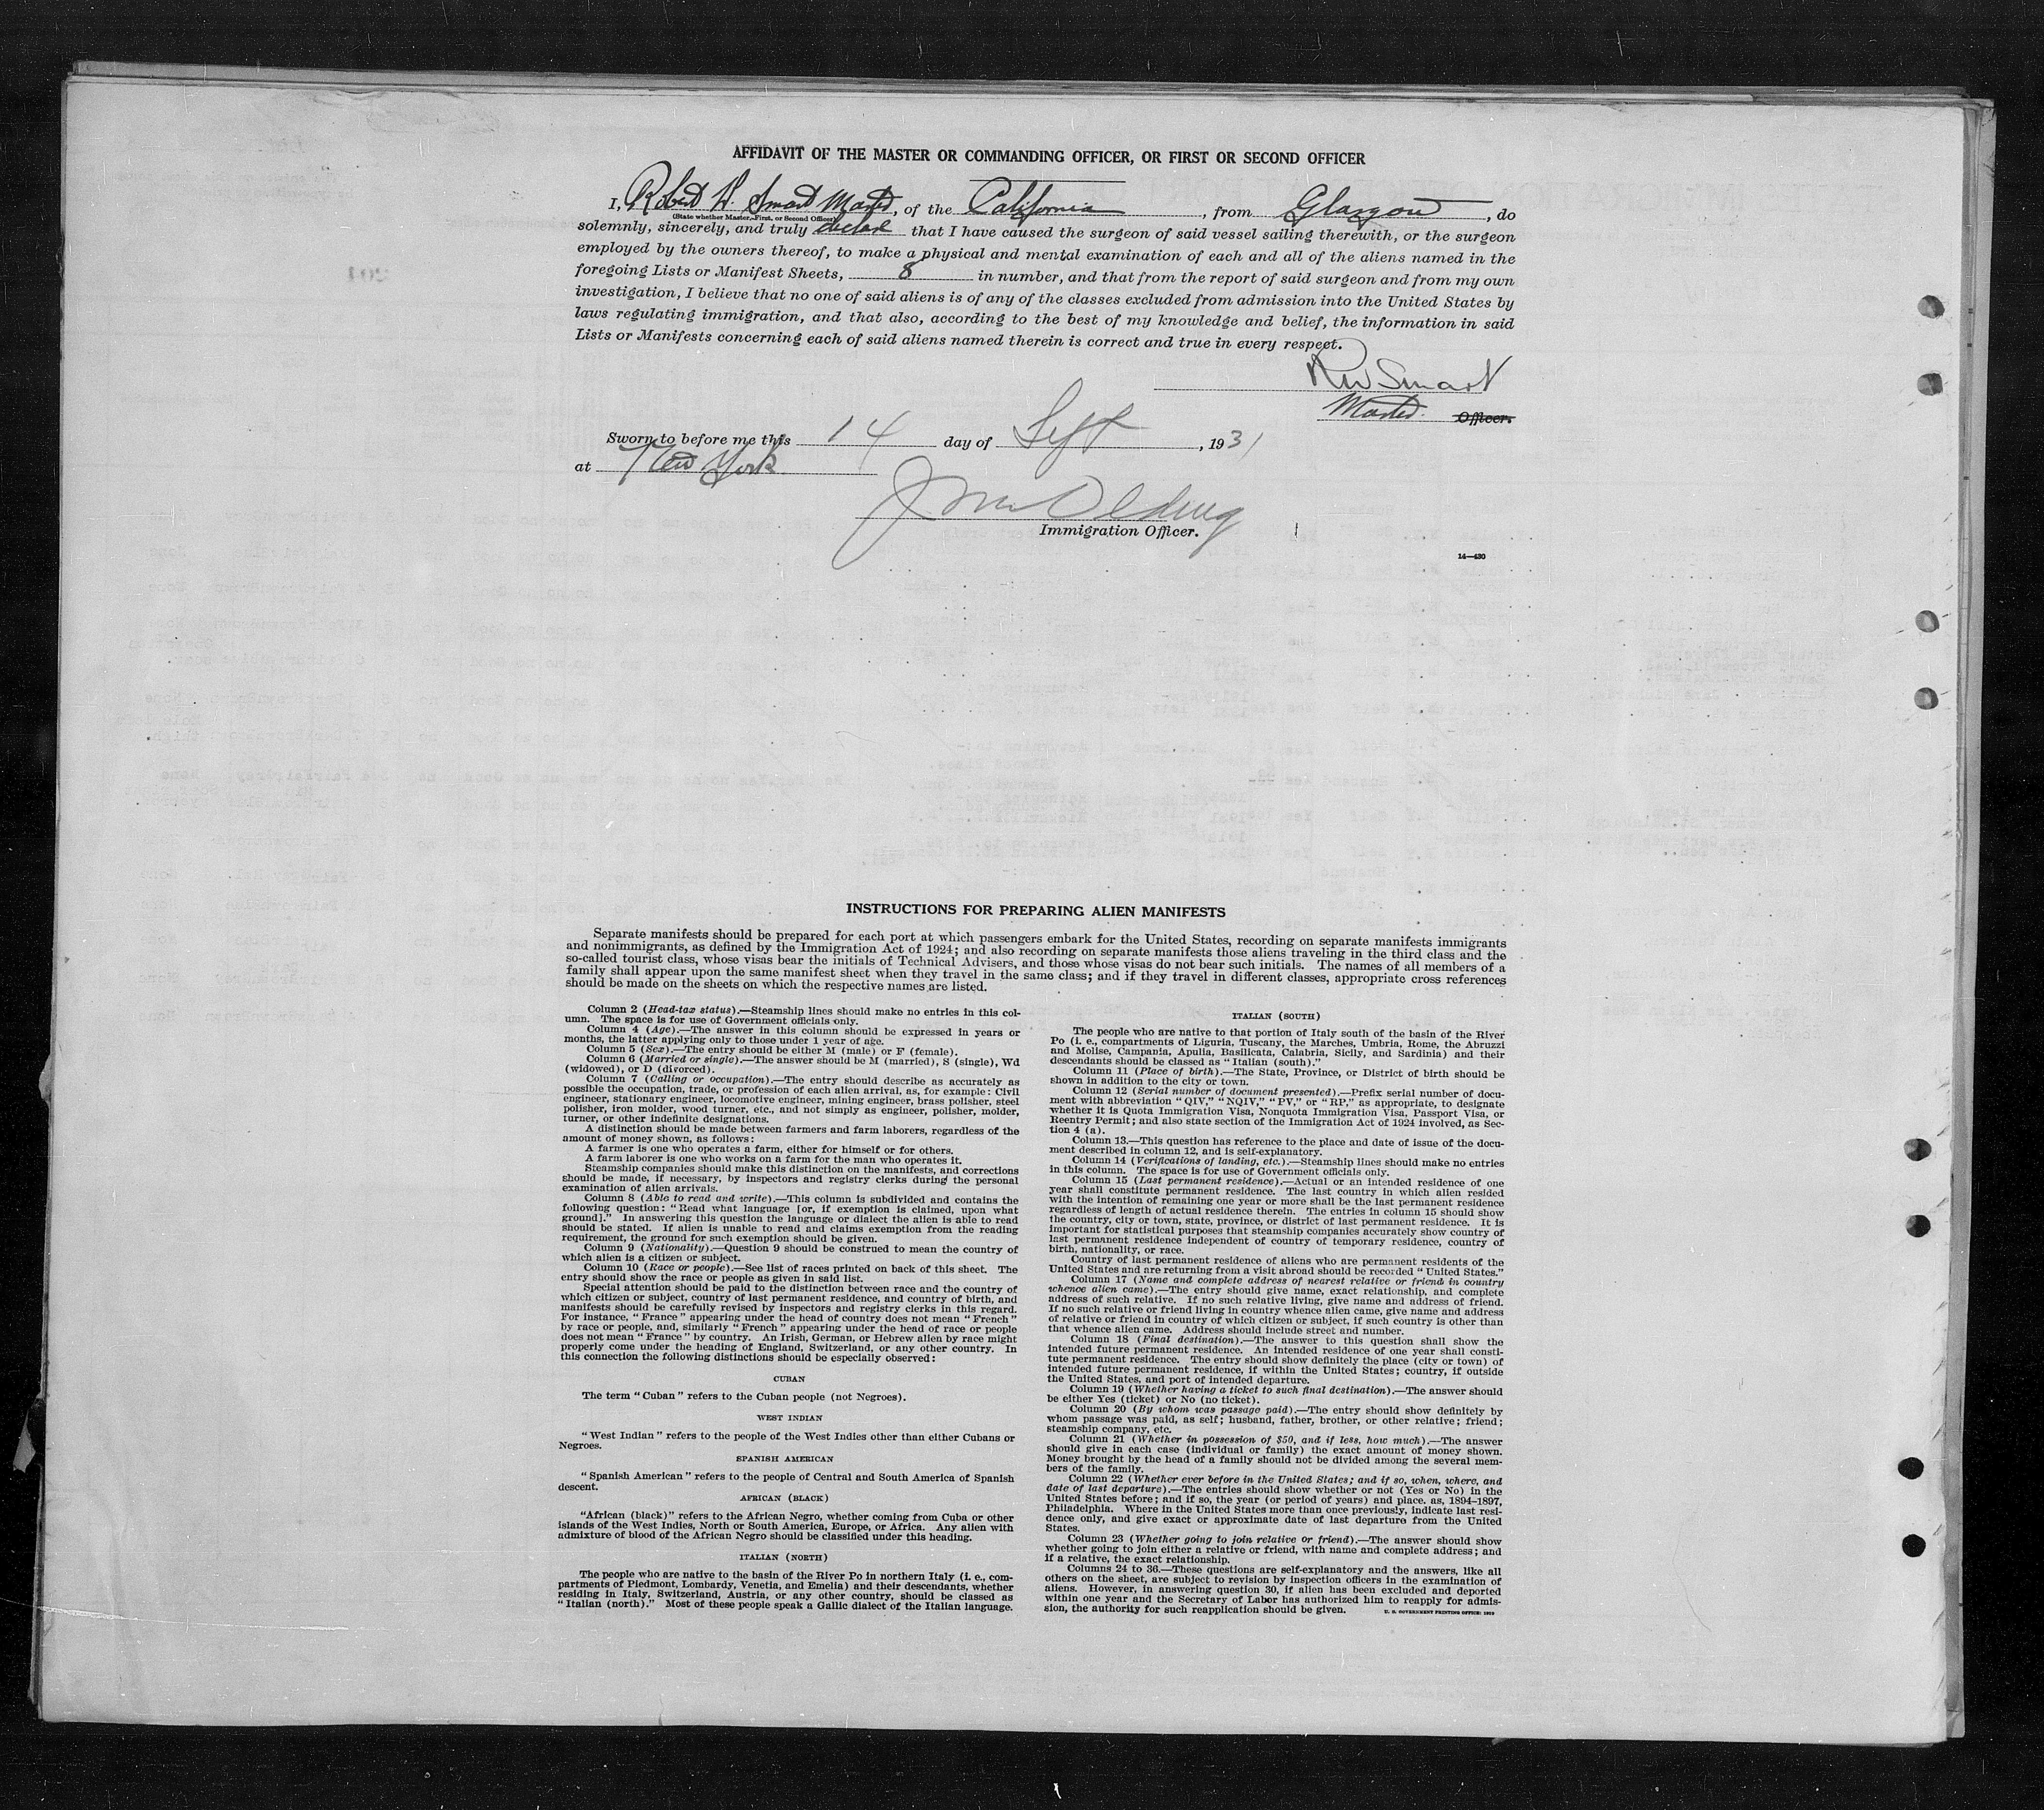 AFFIDAVIT OF THE MASTER OR COMMANDING OFFICER, OR FIRST OR SECOND OFFICER
I, Robert W. Smart Master, of the California, from Glasgow, do
(State whether Master, First, or Second Officer)
solemnly, sincerely, and truly declare that I have caused the surgeon of said vessel sailing therewith, or the surgeon
employed by the owners thereof, to make a physical and mental examination of each and all of the aliens named in the
foregoing Lists or Manifest Sheets, 8 in number, and that from the report of said surgeon and from my own
investigation, I believe that no one of said aliens is of any of the classes excluded from admission into the United States by
laws regulating immigration, and that also, according to the best of my knowledge and belief, the information in said
Lists or Manifests concerning each of said aliens named therein is correct and true in every respect.
RW Smart
Master. Officer.
Sworn to before me this 14 day of Sept, 1931
at New York
Immigration Officer.
14—430
INSTRUCTIONS FOR PREPARING ALIEN MANIFESTS
Separate manifests should be prepared for each port at which passengers embark for the United States, recording on separate manifests immigrants
and nonimmigrants, as defined by the Immigration Act of 1924; and also recording on separate manifests those aliens traveling in the third class and the
so-called tourist class, whose visas bear the initials of Technical Advisers, and those whose visas do not bear such initials. The names of all members of a
family shall appear upon the same manifest sheet when they travel in the same class; and if they travel in different classes, appropriate cross references
should be made on the sheets on which the respective names are listed.
Column 2 (Head-tax status).—Steamship lines should make no entries in this col-
umn. The space is for use of Government officials only.
Column 4 (Age).—The answer in this column should be expressed in years or
months, the latter applying only to those under 1 year of age.
Column 5 (Sex).—The entry should be either M (male) or F (female).
Column 6 (Married or single).—The answer should be M (married), S (single), Wd
(widowed), or D (divorced).
Column 7 (Calling or occupation).—The entry should describe as accurately as
possible the occupation, trade, or profession of each alien arrival, as, for example: Civil
engineer, stationary engineer, locomotive engineer, mining engineer, brass polisher, steel
polisher, iron molder, wood turner, etc., and not simply as engineer, polisher, molder,
turner, or other indefinite designations.
A distinction should be made between farmers and farm laborers, regardless of the
amount of money shown, as follows:
A farmer is one who operates a farm, either for himself or for others.
A farm laborer is one who works on a farm for the man who operates it.
Steamship companies should make this distinction on the manifests, and corrections
should be made, if necessary, by inspectors and registry clerks during the personal
examination of alien arrivals.
Column 8 (Able to read and write).—This column is subdivided and contains the
following question: “Read what language [or, if exemption is claimed, upon what
ground].” In answering this question the language or dialect the alien is able to read
should be stated. If alien is unable to read and claims exemption from the reading
requirement, the ground for such exemption should be given.
Column 9 (Nationality).—Question 9 should be construed to mean the country of
which alien is a citizen or subject.
Column 10 (Race or people).—See list of races printed on back of this sheet. The
entry should show the race or people as given in said list.
Special attention should be paid to the distinction between race and the country of
which citizen or subject, country of last permanent residence, and country of birth, and
manifests should be carefully revised by inspectors and registry clerks in this regard.
For instance, “France” appearing under the head of country does not mean “French”
by race or people, and, similarly “French” appearing under the head of race or people
does not mean “France” by country. An Irish, German, or Hebrew alien by race might
properly come under the heading of England, Switzerland, or any other country. In
this connection the following distinctions should be especially observed:
CUBAN
The term “Cuban” refers to the Cuban people (not Negroes).
WEST INDIAN
“West Indian” refers to the people of the West Indies other than either Cubans or
Negroes.
SPANISH AMERICAN
“Spanish American” refers to the people of Central and South America of Spanish
descent.
AFRICAN (BLACK)
“African (black)” refers to the African Negro, whether coming from Cuba or other
islands of the West Indies, North or South America, Europe, or Africa. Any alien with
admixture of blood of the African Negro should be classified under this heading.
ITALIAN (NORTH)
The people who are native to the basin of the River Po in northern Italy (i. e., com-
partments of Piedmont, Lombardy, Venetia, and Emelia) and their descendants, whether
residing in Italy, Switzerland, Austria, or any other country, should be classed as
“Italian (north).” Most of these people speak a Gallic dialect of the Italian language.
ITALIAN (SOUTH)
The people who are native to that portion of Italy south of the basin of the River
Po (i. e., compartments of Liguria, Tuscany, the Marches, Umbria, Rome, the Abruzzi
and Molise, Campania, Apulia, Basilicata, Calabria, Sicily, and Sardinia) and their
descendants should be classed as “Italian (south).”
Column 11 (Place of birth).—The State, Province, or District of birth should be
shown in addition to the city or town.
Column 12 (Serial number of document presented).—Prefix serial number of docu-
ment with abbreviation “QIV,” “NQIV,” “PV,” or “RP,” as appropriate, to designate
whether it is Quota Immigration Visa, Nonquota Immigration Visa, Passport Visa, or
Reentry Permit; and also state section of the Immigration Act of 1924 involved, as Sec-
tion 4 (a).
Column 13.—This question has reference to the place and date of issue of the docu-
ment described in column 12, and is self-explanatory.
Column 14 (Verifications of landing, etc.).—Steamship lines should make no entries
in this column. The space is for use of Government officials only.
Column 15 (Last permanent residence).—Actual or an intended residence of one
year shall constitute permanent residence. The last country in which alien resided
with the intention of remaining one year or more shall be the last permanent residence
regardless of length of actual residence therein. The entries in column 15 should show
the country, city or town, state, province, or district of last permanent residence. It is
important for statistical purposes that steamship companies accurately show country of
last permanent residence independent of country of temporary residence, country of
birth, nationality, or race.
Country of last permanent residence of aliens who are permanent residents of the
United States and are returning from a visit abroad should be recorded “United States.”
Column 17 (Name and complete address of nearest relative or friend in country
whence alien came).—The entry should give name, exact relationship, and complete
address of such relative. If no such relative living, give name and address of friend.
If no such relative or friend living in country whence alien came, give name and address
of relative or friend in country of which citizen or subject, if such country is other than
that whence alien came. Address should include street and number.
Column 18 (Final destination).—The answer to this question shall show the
intended future permanent residence. An intended residence of one year shall consti-
tute permanent residence. The entry should show definitely the place (city or town) of
intended future permanent residence, if within the United States; country, if outside
the United States, and port of intended departure.
Column 19 (Whether having a ticket to such final destination).—The answer should
be either Yes (ticket) or No (no ticket).
Column 20 (By whom was passage paid).—The entry should show definitely by
whom passage was paid, as self; husband, father, brother, or other relative; friend;
steamship company, etc.
Column 21 (Whether in possession of $50, and if less, how much).—The answer
should give in each case (individual or family) the exact amount of money shown.
Money brought by the head of a family should not be divided among the several mem-
bers of the family.
Column 22 (Whether ever before in the United States; and if so, when, where, and
date of last departure).—The entries should show whether or not (Yes or No) in the
United States before; and if so, the year (or period of years) and place. as, 1894–1897,
Philadelphia. Where in the United States more than once previously, indicate last resi-
dence only, and give exact or approximate date of last departure from the United
States.
Column 23 (Whether going to join relative or friend).—The answer should show
whether going to join either a relative or friend, with name and complete address; and
if a relative, the exact relationship.
Columns 24 to 36.—These questions are self-explanatory and the answers, like all
others on the sheet, are subject to revision by inspection officers in the examination of
aliens. However, in answering question 30, if alien has been excluded and deported
within one year and the Secretary of Labor has authorized him to reapply for admis-
sion, the authority for such reapplication should be given.
U. S. GOVERNMENT PRINTING OFFICE: